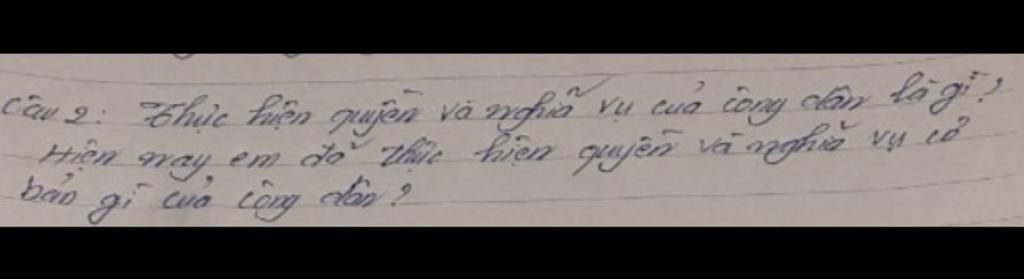 Câu 2: Thực hiện quyền và nghĩa vụ của công dân là gì?
Hiện nay em đã thực hiện quyền và nghĩa vụ cơ
bản gì của công dân?